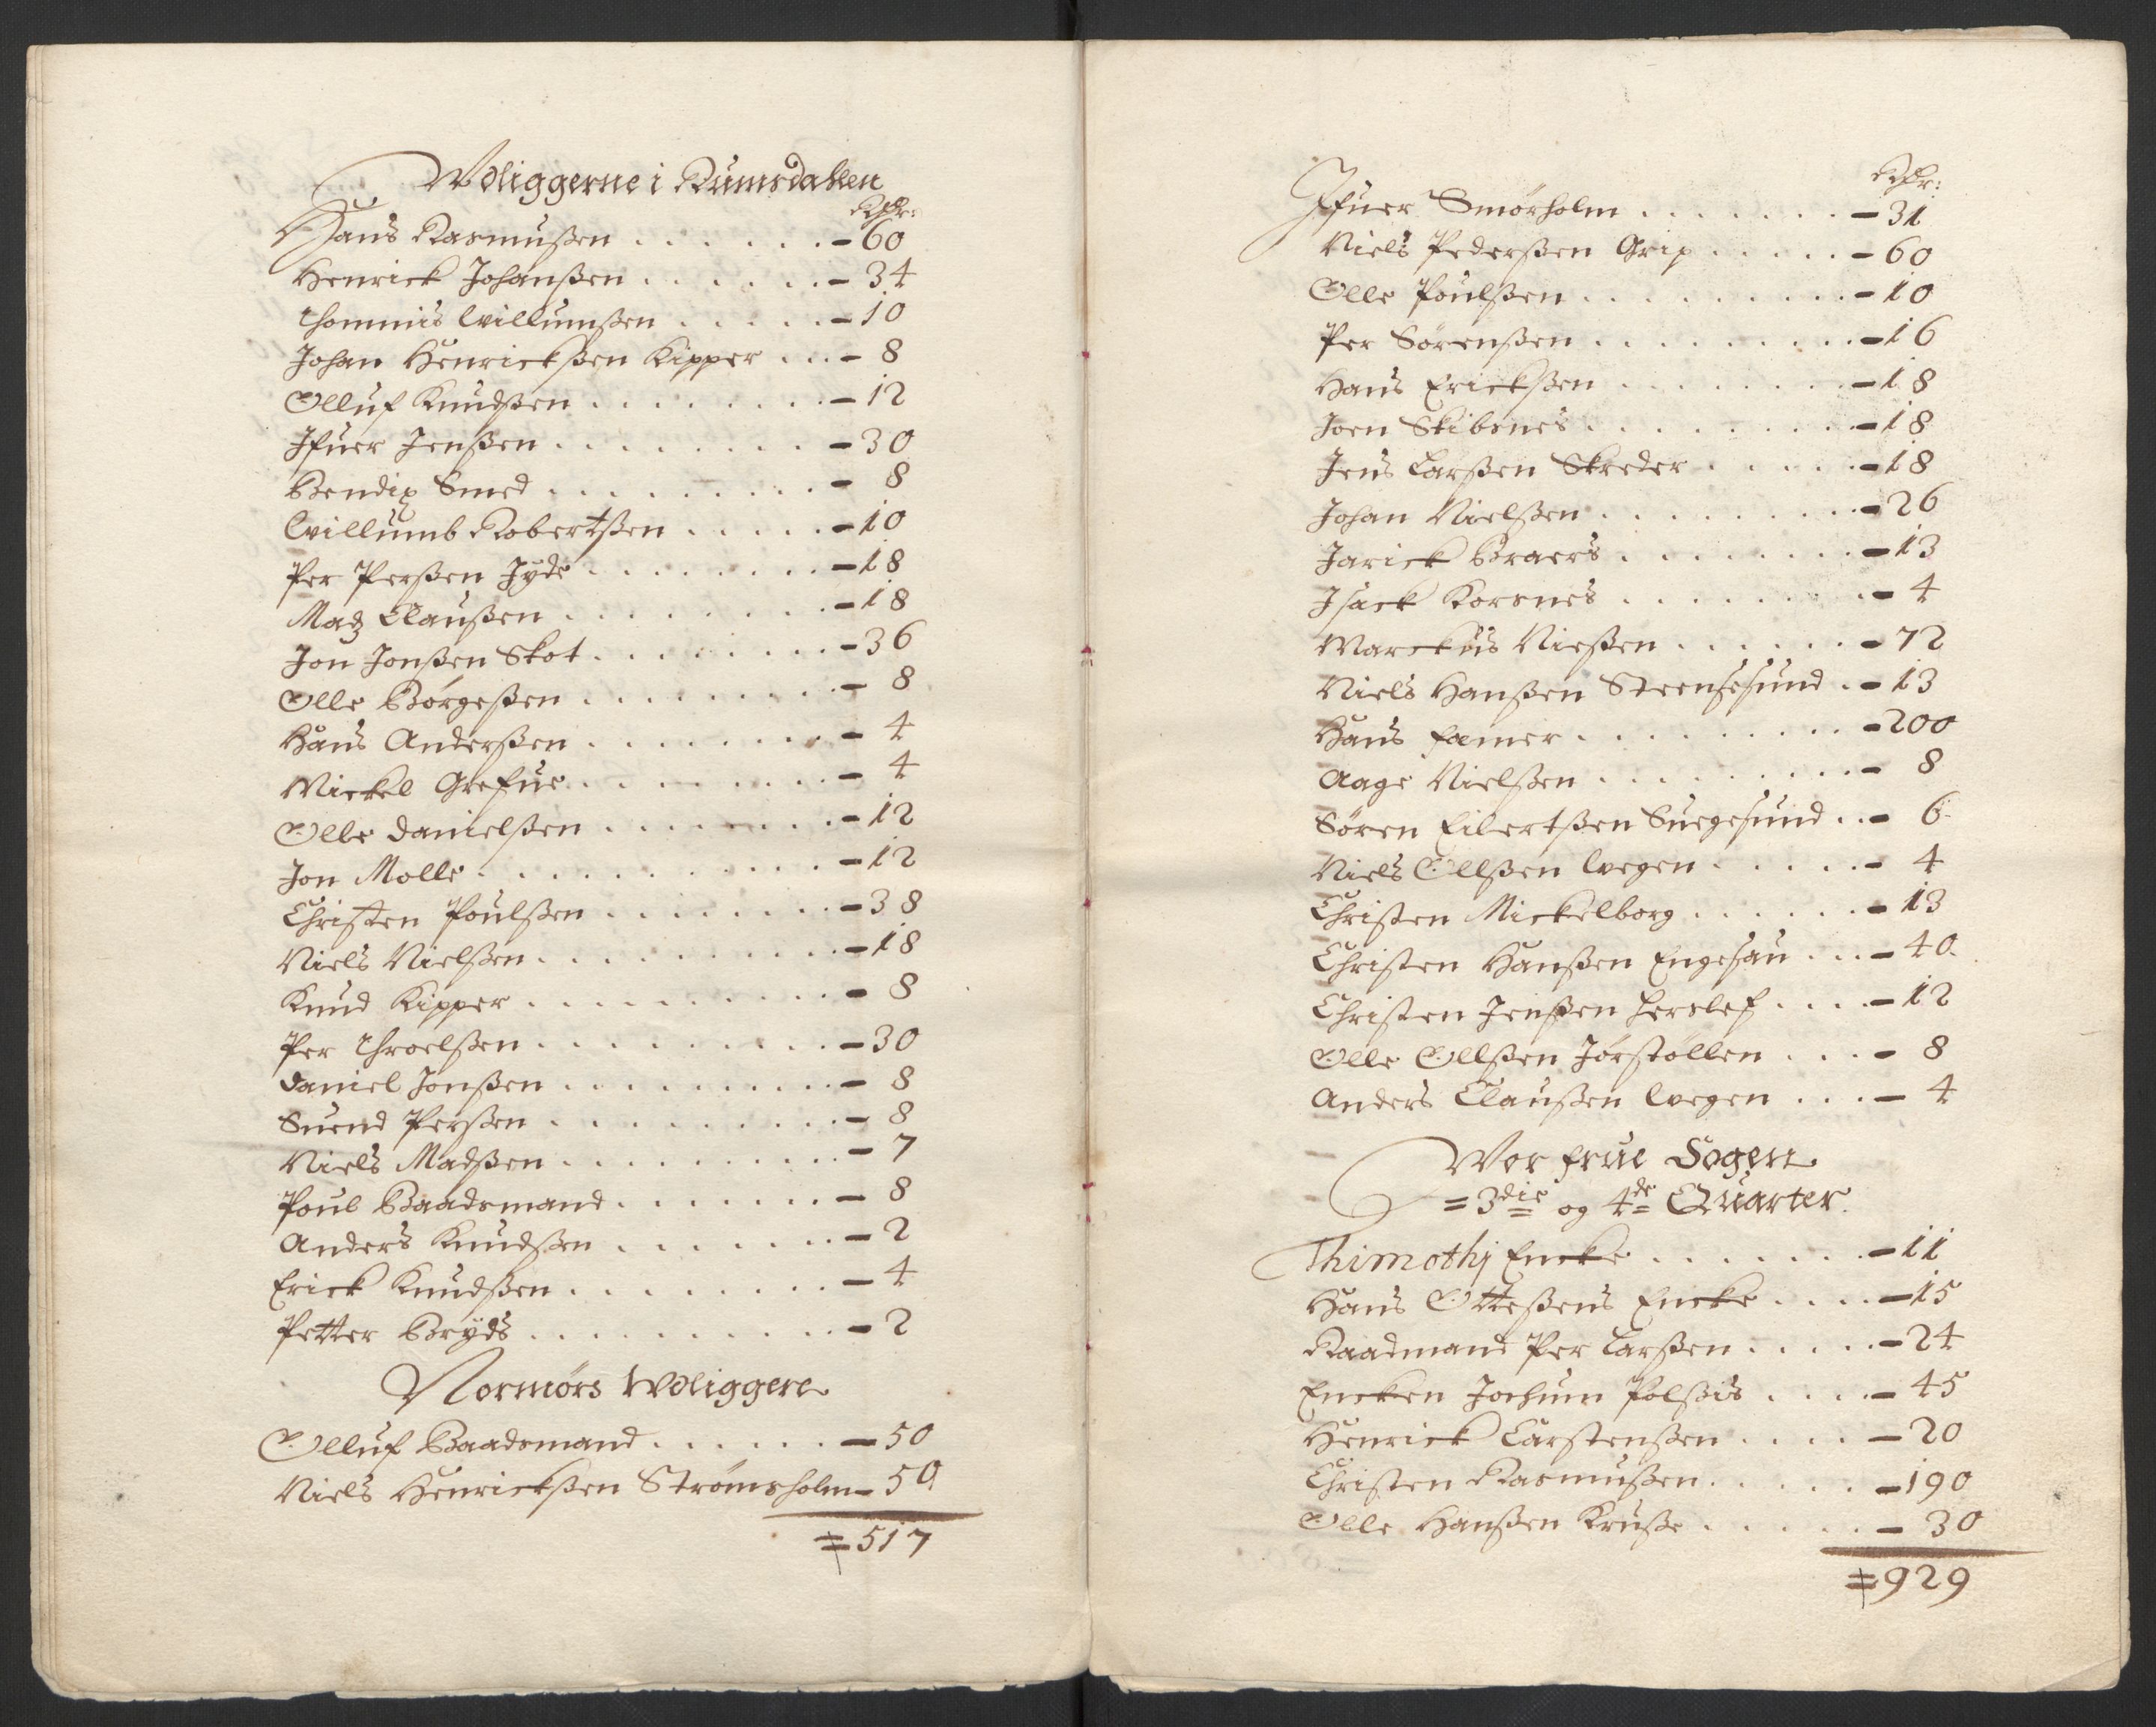 Wdliggerne i Rumsdahlen
Rdr:
Hans Rasmußen . . . . . . - 60
Henrick Johanßen . . . . . . - 34
Thommis Willumßen . . . . . - 10
Johan Henrickßen Kipper . . . - 8
Olluf Knudßen . . . . . . . . - 12
Ifuer Jenßen . . . . . . . . - 30
Bendix Smed . . . . . . . . . - 8
Willumb Robertßen . . . . . - 10
Per Perßen Jyde . . . . . . . . - 18
Madz Claußen . . . . . . . . - 18
Jon Jonßen Skot . . . . . . . . - 36
Olle Børgeßen . . . . . . . . - 8
Hans Anderßen . . . . . . . . - 4
Mickel Grefue . . . . . . . . - 4
Olle Danielßen . . . . . . . - 12
Jon Molle . . . . . . . . . . . - 12
Christen Poulßen . . . . . . . - 38
Niels Nielßen . . . . . . . . . . - 18
Knud Kipper . . . . . . . . . . - 8
Per Throelßen . . . . . . . . . - 30
Daniel Jonßen . . . . . . . . . - 8
Suend Perßen . . . . . . . . . - 8
Niels Madßen . . . . . . . . . - 7
Poul Baadsmand . . . . . . . - 8
Anders Knudßen . . . . . . . - 2
Erick Knudßen . . . . . . . . - 4
Petter Bryds . . . . . . . . . . - 2
Normørs Wdliggere
Olluf Baadsmand . . . . . . - 50
Niels Henrickßen Strømsholm - 50
= 517
Rdr:
Ifuer Smørholm . . . . . . . - 31
Niels Pederßen Grip . . . . . - 60
Olle Poulßen . . . . . . . . . - 10
Per Sørenßen . . . . . . . . . - 16
Hans Erickßen . . . . . . . . - 18
Joen Skibsnes . . . . . . . . . - 18
Jens Larßen Skreder . . . . . - 18
Johan Nielßen . . . . . . . . . - 26
Jarick Braers . . . . . . . . - 13
Isack Korsnes . . . . . . . . - 4
Marckus Nießen . . . . . . - 72
Niels Hanßen Steensesund . - 13
Hans Famer . . . . . . . . . - 200
Aage Nielßen . . . . . . . . . - 8
Søren Eilertßen Suegesund . . - 6
Niels Ollßen Wegen . . . . . - 4
Christen Mickelborg . . . . . . - 13
Christen Hanßen Engesau . . . - 40
Christen Jenßen Herslef . . . . - 12
Olle Ollßen Jørstøllen . . . - 8
Anders Claußen Wegen . . . - 4
Wor Frue Sogen
= 3die og 4de Quarter
Thimothj Encke . . . . . . . - 11
Hans Otteßens Encke . . . . - 15
Raadmand Per Larßen . . . . . - 24
Encken Jochum Polßis . . . . - 45
Henrick Carstenßen . . . . - 20
Christen Rasmußen . . . . . - 190
Olle Hanßen Kruße . . . . . - 30
= 929